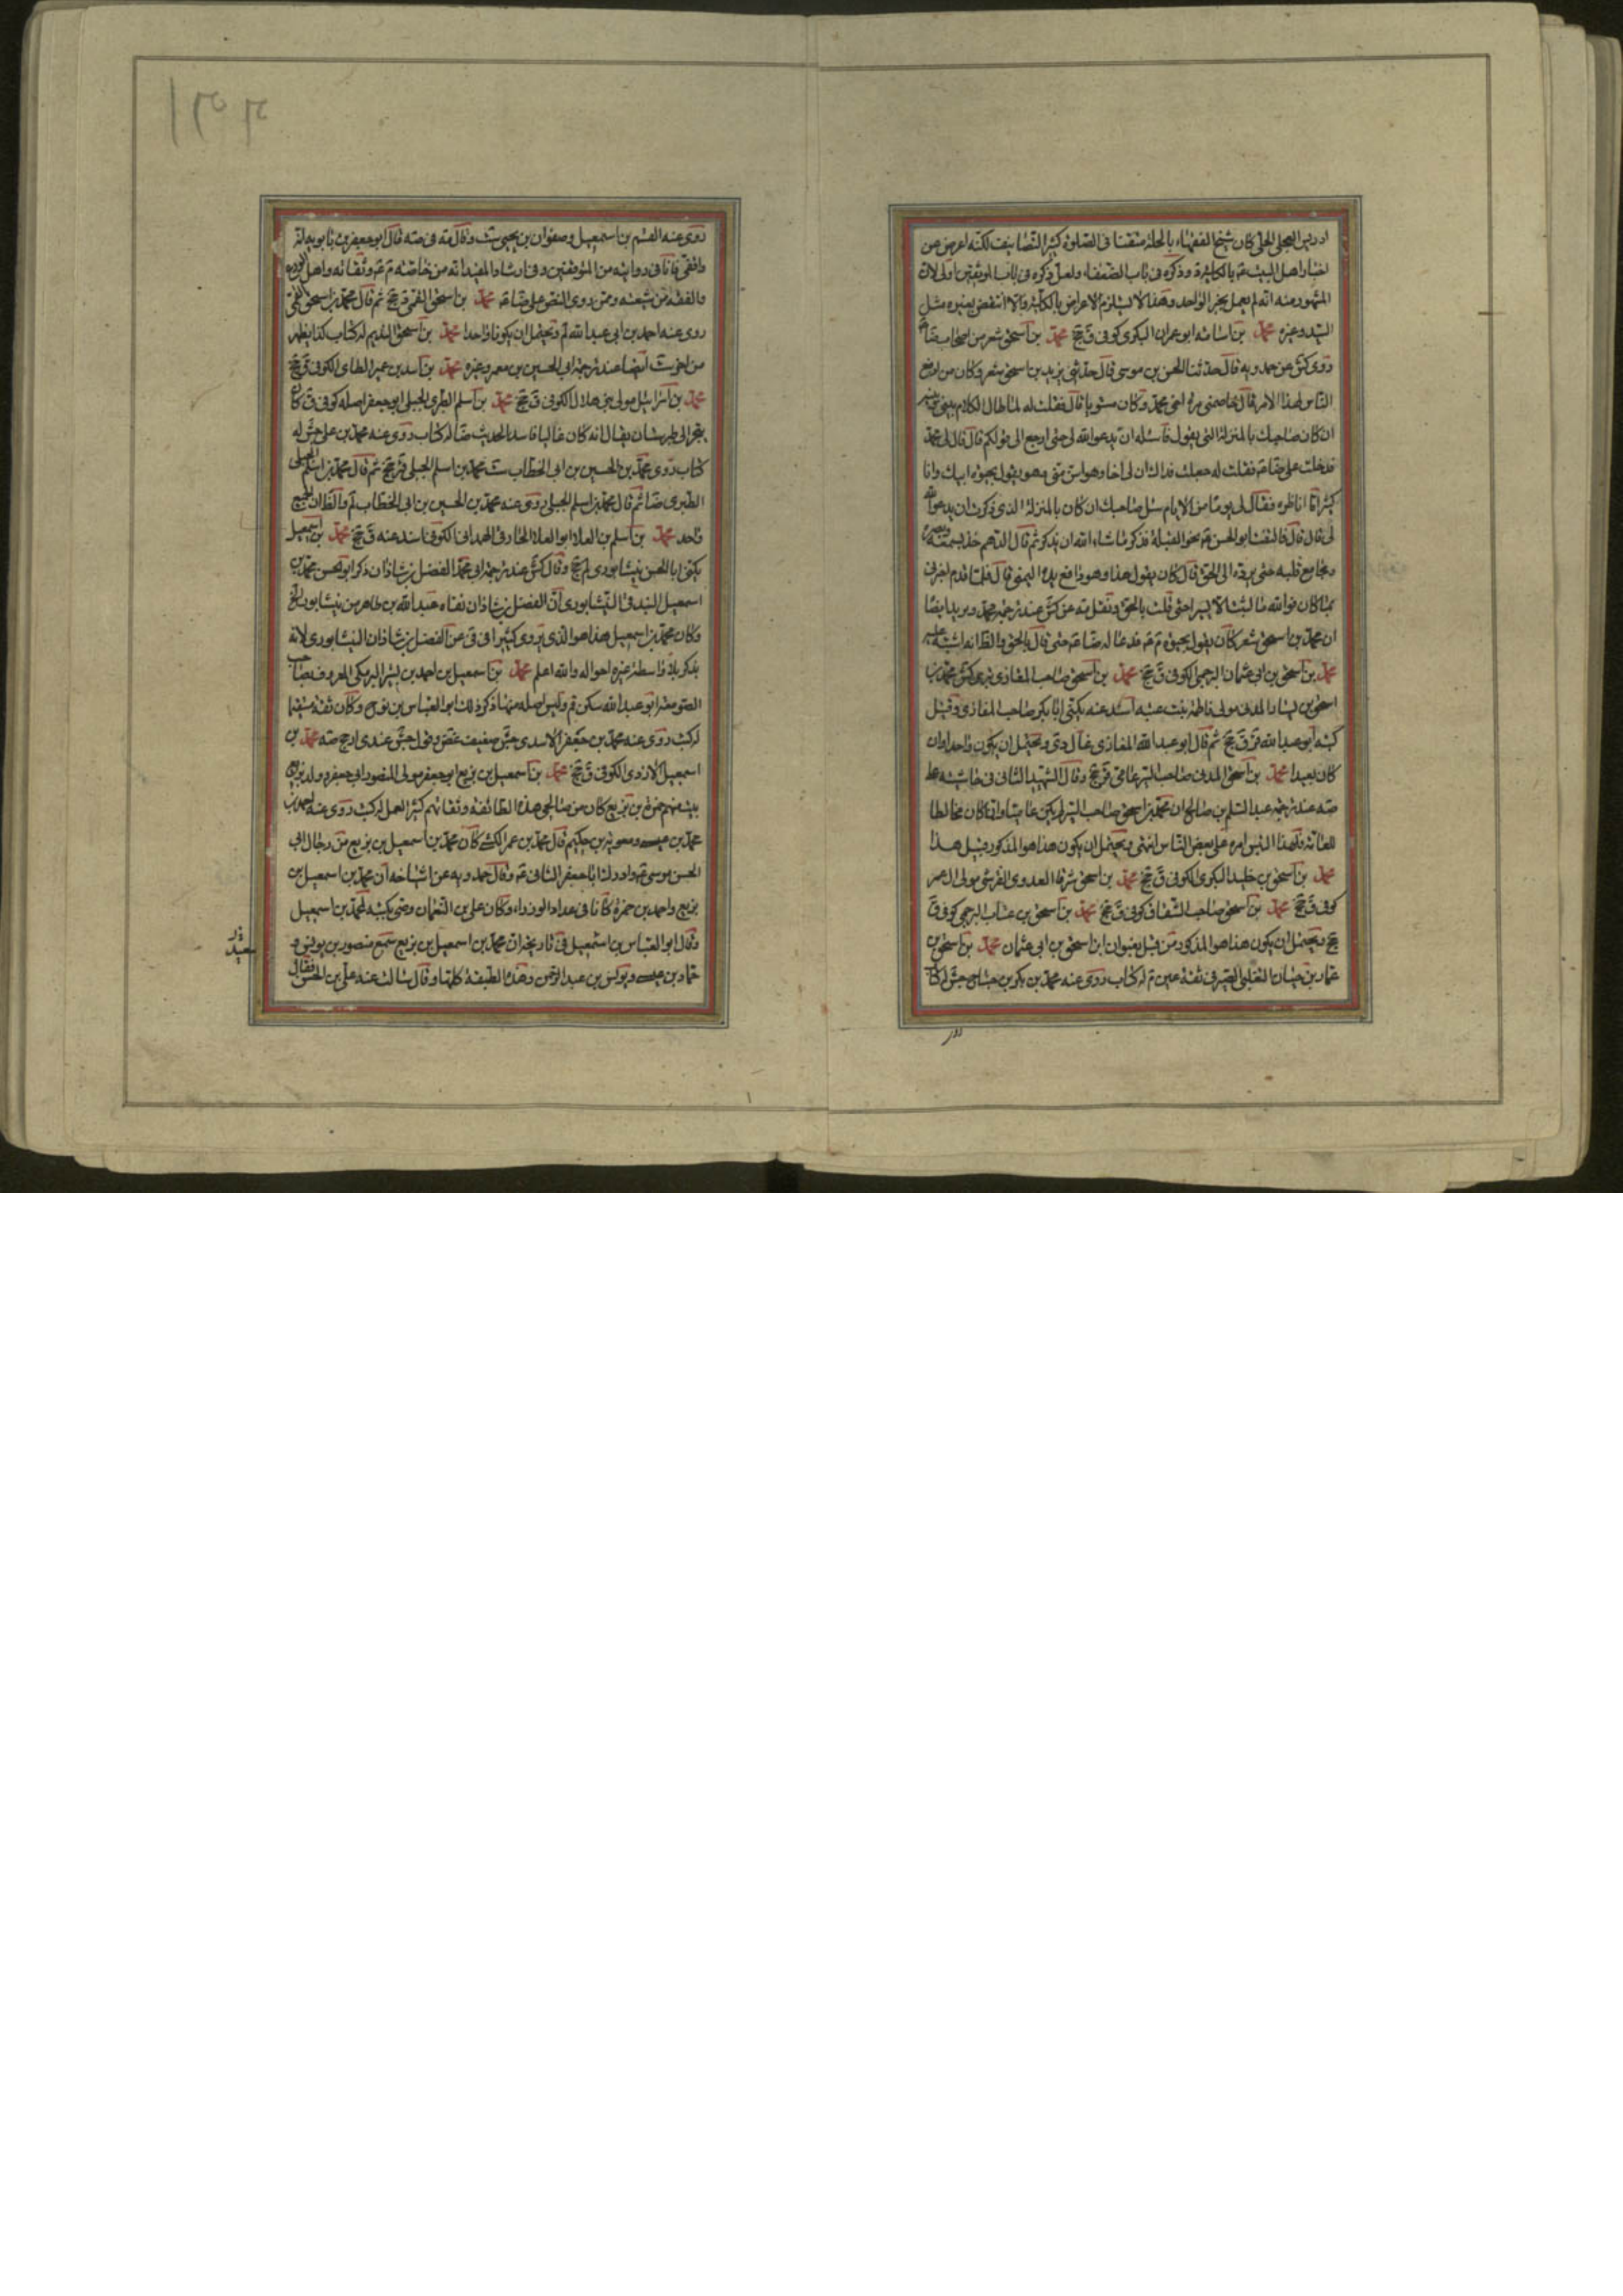 ادريس العجلى الحلى كان شيخ الفقهاء بالحلة متقنا فى العلوم كثير التصانيف لكنه اعرض عن
اخبار اهل البيت ع بالكلية و ذكره فى باب الضعفاء ولعل ذكره فى باب الموثقين اولى لان
المشهور منه انه لم يعمل بخبر الواحد وهذا لا يستلزم الاعراض بالكلية والا انتقض بغيره مثل
السيد وغيره محمد بن اسامه ابو عمران البكرى كوفى ق جخ محمد بن اسحق شعر من اصحاب ضا
روى كش عن حمدويه قال حدثنا الحسن بن موسى قال حدثنى يزيد بن اسحق شعر وكان من ادفع
الناس لهذا الامر قال خاصمنى مرة اخى محمد وكان مستويا قال فقلت له لما طال الكلام بينى وبينه
ان كان صاحبك بالمنزلة التى يقول فاسئله ان يدعو الله لى حتى ارجع الى قولكم قال قال لى محمد
فدخلت على ضا ع فقلت له جعلت فداك ان لى اخا وهو اسن منى وهو يقول بحيوة ابيك وانا
كثيرا ما اناظره فقال لى يوما من الايام سل صاحبك ان كان بالمنزلة الذى ذكرت ان يدعو الله
لى قال قال فالتفت ابو الحسن ع نحو القبلة فذكر ما شاء الله ان يذكر ثم قال اللهم خذ بسمعه وبصره
ومجامع قلبه حتى ترده الى الحق قال كان يقول هذا وهو رافع يده اليمنى قال فلما قدم اخبرنى
بما كان فوالله ما لبثت الا يسيرا حتى قلت بالحق ونقل مه عن كش عند ترجمة محمد ويزيد ايضا
ان محمد بن اسحق شعر كان يقول بحيوة م ع فدعا له ضا ع حتى قال بالحق والظ انه اشتبه عليه
محمد بن اسحق بن ابى عثمان البرجمى الكوفى ق جخ محمد بن اسحق صاحب المغازى بترى كش محمد بن
اسحق بن يسار المدنى مولى فاطمة بنت عتبه اسند عنه يكنى ابا بكر صاحب المغازى وقيل
كنيته ابو عبد الله قر ق جخ ثم قال ابو عبد الله المغازى ويحتمل ان يكون واحدا وان
كان بعيدا محمد بن اسحق المدنى صاحب السير عامى قر جخ وقال الشهيد الثانى فى حاشيته على
صه عند ترجمة عبد السلم بن صالح ان محمد بن اسحق صاحب السير لم يكن عاميا وانما كان مخالطا
للعامة فلهذا التبس امره على بعض الناس انتهى ويحتمل ان يكون هذا هو المذكور قبيل هذا
محمد بن اسحق بن خليد البكرى الكوفى ق جخ محمد بن اسحق شرفا العدوى القرشى مولى ال عمر
كوفى ق جخ محمد بن اسحق صاحب كوفى ق جخ محمد بن اسحق بن عتاب البرجمى كوفى ق
جخ ويحتمل ان يكون هذا هو المذكور من قبل بعنوان ابن اسحق بن ابى عثمان محمد بن اسحق بن
عمار بن حيان التغلبى الصيرفى ثقة عين م له كتاب روى عنه محمد بن بكر بن جناح جش له كتاب
روى عنه القسم بن اسمعيل وصفوان بن يحيى ست وقال مه فى صه قال ابو جعفر بن بابويه انه
واقفى فانا فى روايته من المتوقفين وفى ارشاد المفيد انه من خاصته م ع وثقاته واهل الورع
والفقه من شيعته وممن روى النص على ضا ع محمد بن اسحق القمى قر جخ ثم قال محمد بن اسحق القمى
روى عنه احمد بن ابى عبد الله لم ويحتمل ان يكونا واحدا محمد بن اسحق النديم له كتاب كذا يظهر
من ست ايضا عند ترجمة ابى الحسين بن معمر وغيره محمد بن اسد بن عمير الطائى الكوفى ق جخ
محمد بن اسرائيل مولى بنى هلال الكوفى ق جخ محمد بن اسلم الطبرى الجبلى ابو جعفر اصله كوفى ق كان
يتجر الى طبرستان يقال انه كان غاليا فاسد الحديث ضا له كتاب روى عنه محمد بن على جش له
كتاب روى محمد بن الحسين بن ابى الخطاب ست محمد بن اسلم الجبلى قر جخ ثم قال محمد بن اسلم الجبلى
الطبرى ضا ثم قال محمد بن اسلم الجبلى روى عنه محمد بن الحسين بن ابى الخطاب لم والظ ان الجميع
واحد محمد بن اسلم بن العلاء ابو العلاء الهمدانى الكوفى اسند عنه ق جخ محمد بن اسمعيل
يكنى ابا الحسن نيشابورى لم جخ وقال كش عند ترجمة ابى محمد الفضل بن شاذان ذكر ابو الحسن محمد بن
اسمعيل البندقى النيشابورى ان الفضل بن شاذان نفاه عبد الله بن طاهر من نيشابور الخ
وكان محمد بن اسمعيل هذا هو الذى يروى كثيرا فى فى عن الفضل بن شاذان النيشابورى لانه
يذكر بلا واسطة غيره احواله والله اعلم محمد بن اسمعيل بن احمد بن بشير البرمكى المعروف بصاحب
الصومعة ابو عبد الله سكن قم وليس اصله منها ذكر ذلك ابو العباس بن نوح وكان ثقة مستقيما
له كتب روى عنه محمد بن جعفر الاسدى جش ضعيف غض وقول جش عندى ارجح صه محمد بن
اسمعيل الازدى الكوفى ق جخ محمد بن اسمعيل بن بزيع ابو جعفر مولى المنصور ابى جعفر وولد بزيع
بيت منهم حمزة بن بزيع كان من صالحى هذه الطائفة وثقاتهم كثير العمل له كتب روى عنه احمد بن
محمد بن عيسى ومعوية بن حكيم قال محمد بن عمر الكشى كان محمد بن اسمعيل بن بزيع من رجال ابى
الحسن موسى ع وادرك ابا جعفر الثانى ع وقال حمدويه عن اشياخه ان محمد بن اسمعيل بن
بزيع واحمد بن حمزة كانا فى عداد الوزراء وكان على بن النعمان وصى بكتبه لمحمد بن اسمعيل
وقال ابو العباس بن سعيد فى تاريخه ان محمد بن اسمعيل بن بزيع سمع منصور بن يونس و
حماد بن عيسى ويونس بن عبد الرحمن وهذه الطبقة كلها وقال سالت عنه على بن الحسن فقال